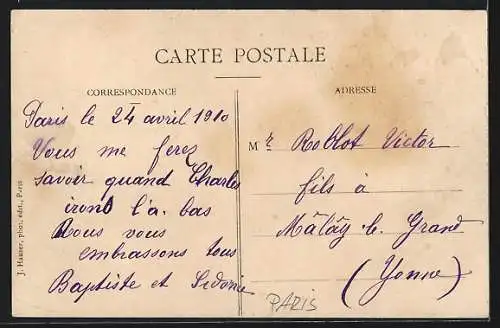 CARTE POSTALE
CORRESPONDANCE
ADRESSE
Paris le 24 avril 1910
Vous me ferez
savoir quand Charles
iront l'a. bas
Nous vous
embrassons tous
Baptiste et Sidonie
Mr Roblot Victor
fils à
Mâlây-le-Grand
(Yonne)
PARIS
J. Hauser, phot. édit., Paris